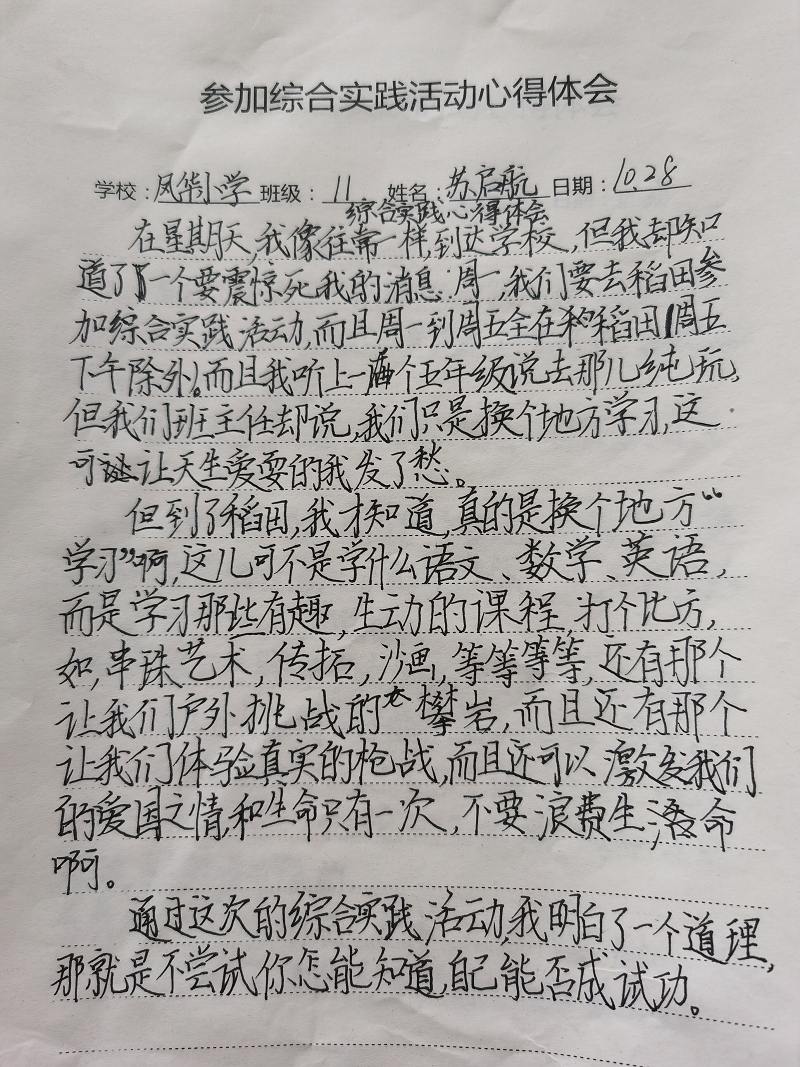 参加综合实践活动心得体会
学校：凤华小学 班级：11 姓名：苏启航 日期：10.28
综合实践心得体会
在星期天,我像往常一样,到达学校,但我却知
道了一个要震惊死我的消息 周一,我们要去稻田参
加综合实践活动,而且周一到周五全在稻田(周五
下午除外)。而且我听上一个五年级说去那儿纯玩,
但我们班主任却说,我们只是换个地方学习,这
可让天生爱耍的我发了愁。
但到了稻田,我才知道,真的是换个地方“
学习”啊,这儿可不是学什么语文、数学、英语,
而是学习那些有趣,生动的课程,打个比方,
如,串珠艺术,传拓,沙画,等等等等,还有那个
让我们户外挑战的攀岩,而且还有那个
让我们体验真实的枪战,而且还可以激发我们
的爱国之情,和生命只有一次,不要浪费生命
啊。
通过这次的综合实践活动,我明白了一个道理,
那就是不尝试你怎能知道,自己能否成试功。